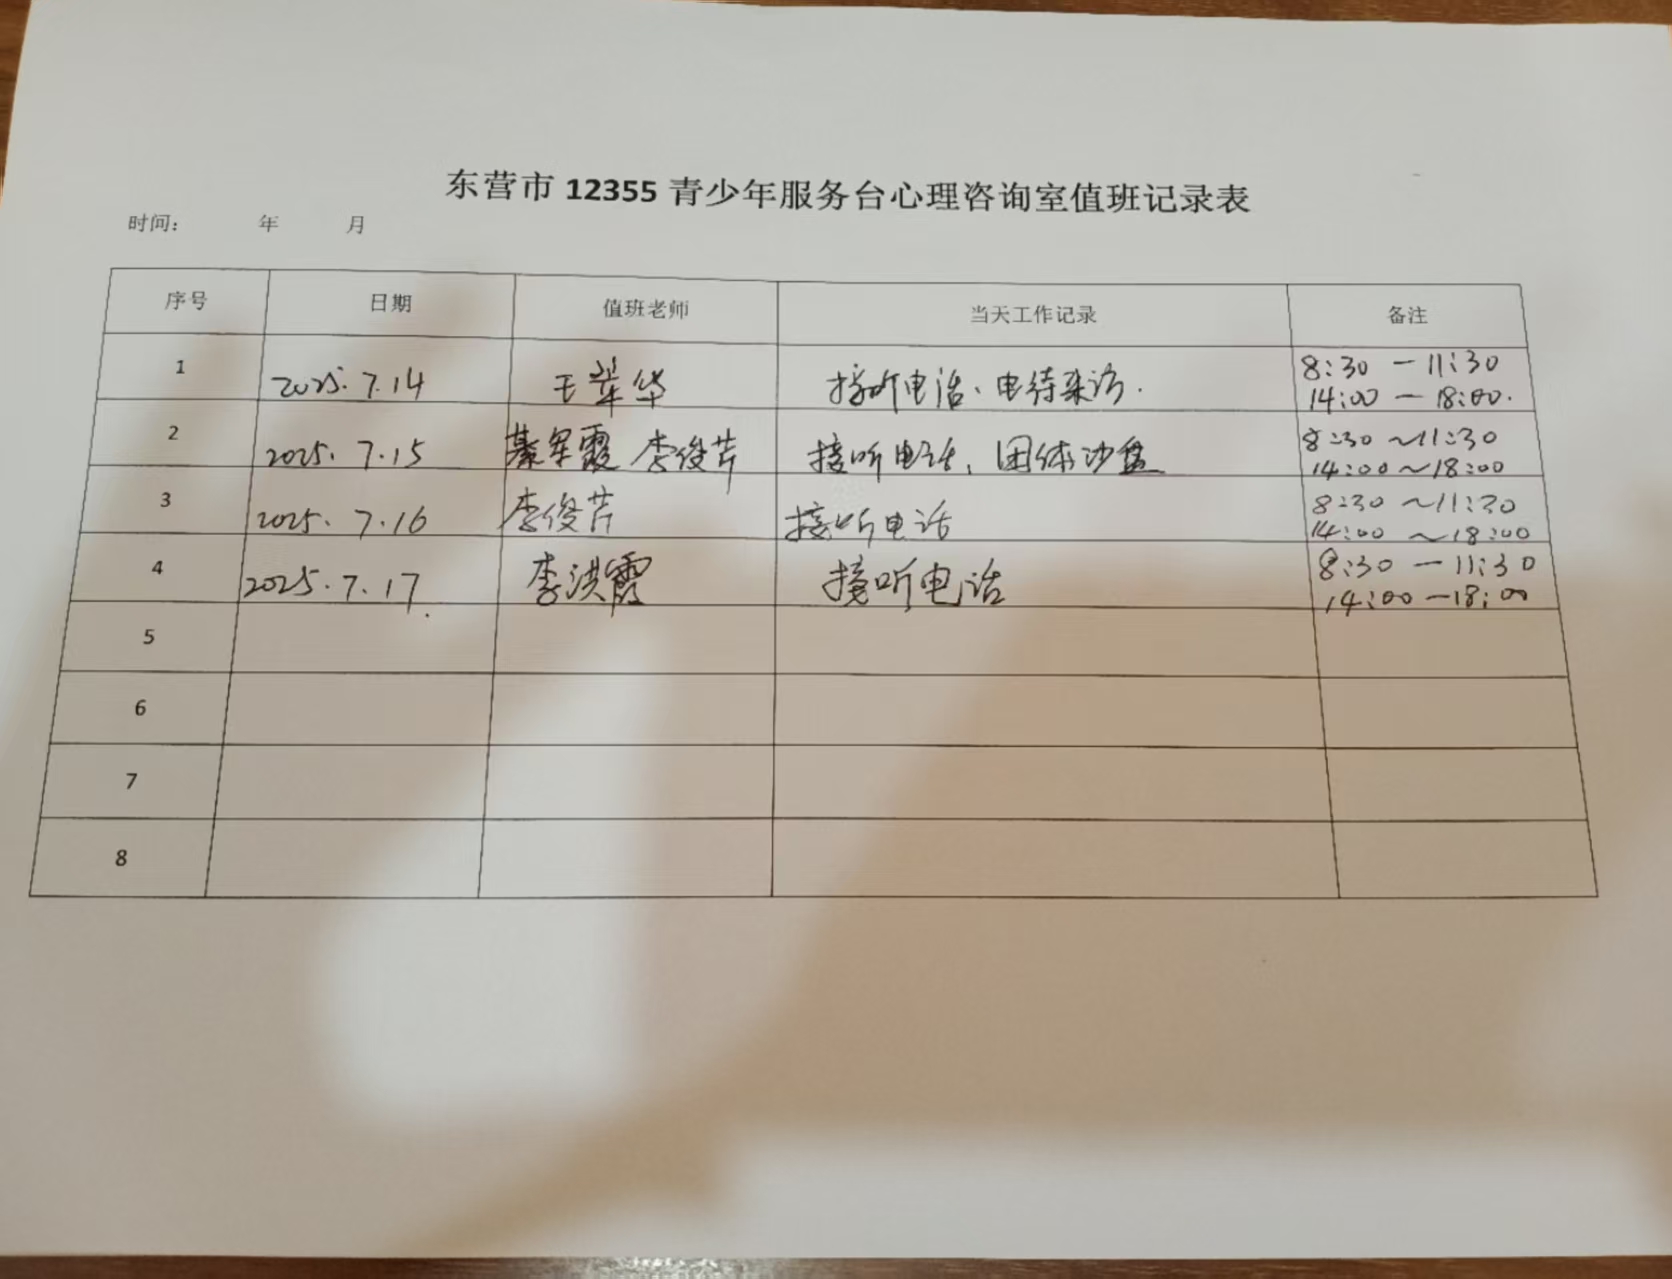 东营市 12355 青少年服务台心理咨询室值班记录表
时间: 年 月
序号 日期 值班老师 当天工作记录 备注
1 2025.7.14 王翠华 接听电话、电待来访. 8:30 — 11:30
14:00 — 18:00.
2 2025.7.15 綦军霞 李俊芹 接听电话, 团体沙盘 8:30 ~11:30
14:00~18:00
3 2025.7.16 李俊芹 接听电话 8:30 ~11:30
14:00 ~18:00
4 2025.7.17. 李洪霞 接听电话 8:30 — 11:30
14:00 —18:00
5
6
7
8